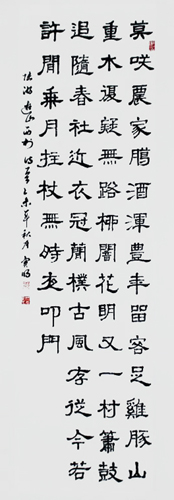 莫咲農家臘酒渾豐年留客足雞豚山
重水複疑無路柳闇花明又一村簫鼓
追隨春社近衣冠簡樸古風存從今若
許閒乘月拄杖無時夜叩門
陸游遊山西村詩一首乙未年秋月